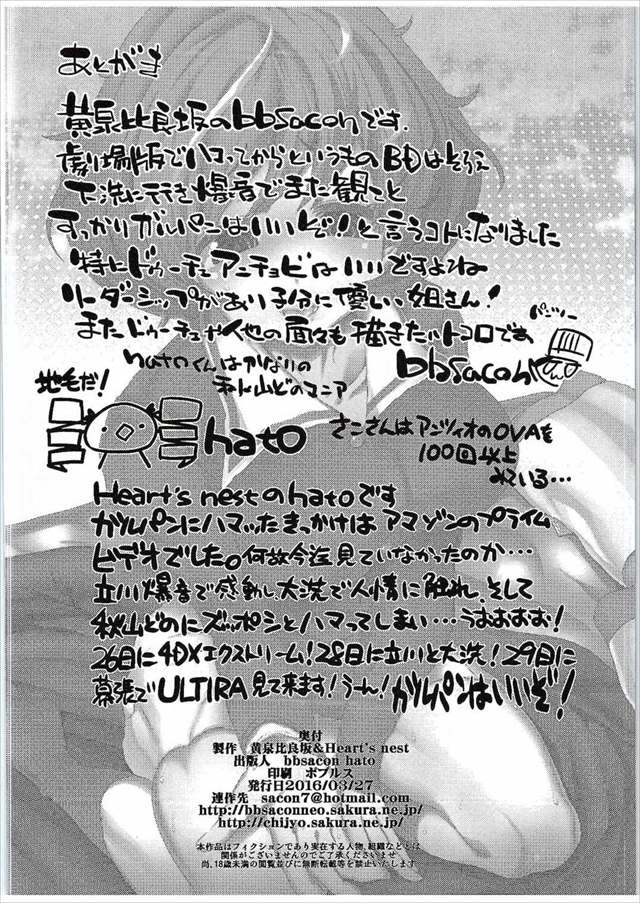 あとがき
黄泉比良坂のbbsaconです.
劇場版でハマってからというものBDはそろえ
大洗に行き爆音でまた観てと
すっかりガルパンはいいぞ!と言うコトになりました
特にドゥーチェアンチョビはいいですよね
リーダーシップがあり子分に優しい、姐さん!
またドゥーチェや他の面々も描きたいトコロです
パンツァー
bbsacon
hatoくんはかなりの
秋山どのマニア
地毛だ!
hato
さこさんはアンツィオのOVAを
100回以上
みている…
Heart's nestのhatoです
ガルパンにハマッたきっかけはアマゾンのプライム
ビデオでした。何故今迄見ていなかったのか…
立川爆音で感動し大洗で人情に触れ、そして
秋山どのにズッポシとハマってしまい…うおおおお!
26日に4DXエクストリーム!28日に立川と大洗!29日に
幕張でULTIRA見て来ます!うーん!ガルパンはいいぞ!
奥付
製作 黄泉比良坂&Heart's nest
出版人 bbsacon hato
印刷 ポプルス
発行日2016/03/27
連作先 sacon7@hotmail.com
http://bbsaconneo.sakura.ne.jp/
http://chijyo.sakura.ne.jp/
本作品はフィクションであり実在する人物、組織などとは
関係がございませんのでご了承くださいませ
尚、18歳未満の閲覧並びに無断転載等を禁止いたします